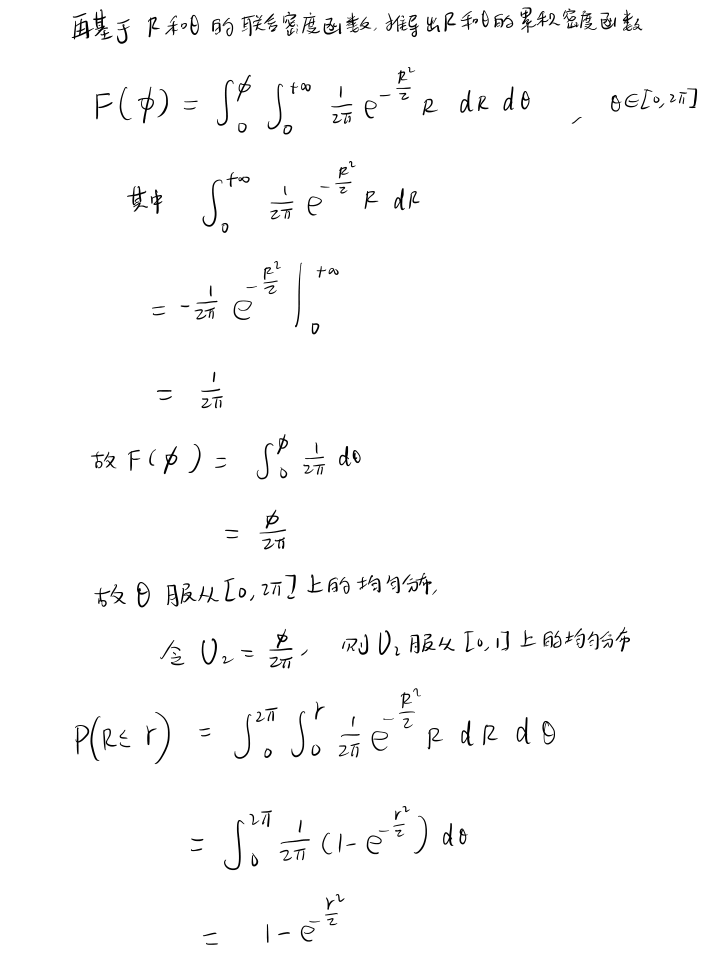 再基于 R和θ的联合密度函数,推导出R和θ的累积密度函数
F(ϕ) = ∫₀^ϕ ∫₀^{+∞} 1/2π e^{-R²/2} R dR dθ , θ∈[0,2π]
其中 ∫₀^{+∞} 1/2π e^{-R²/2} R dR
= -1/2π e^{-R²/2} |₀^{+∞}
= 1/2π
故 F(ϕ) = ∫₀^ϕ 1/2π dθ
= ϕ/2π
故 θ 服从[0,2π]上的均匀分布,
令 U₂ = ϕ/2π, 则U₂服从[0,1]上的均匀分布
P(R≤r) = ∫₀^{2π} ∫₀^r 1/2π e^{-R²/2} R dR dθ
= ∫₀^{2π} 1/2π (1-e^{-r²/2}) dθ
= 1-e^{-r²/2}